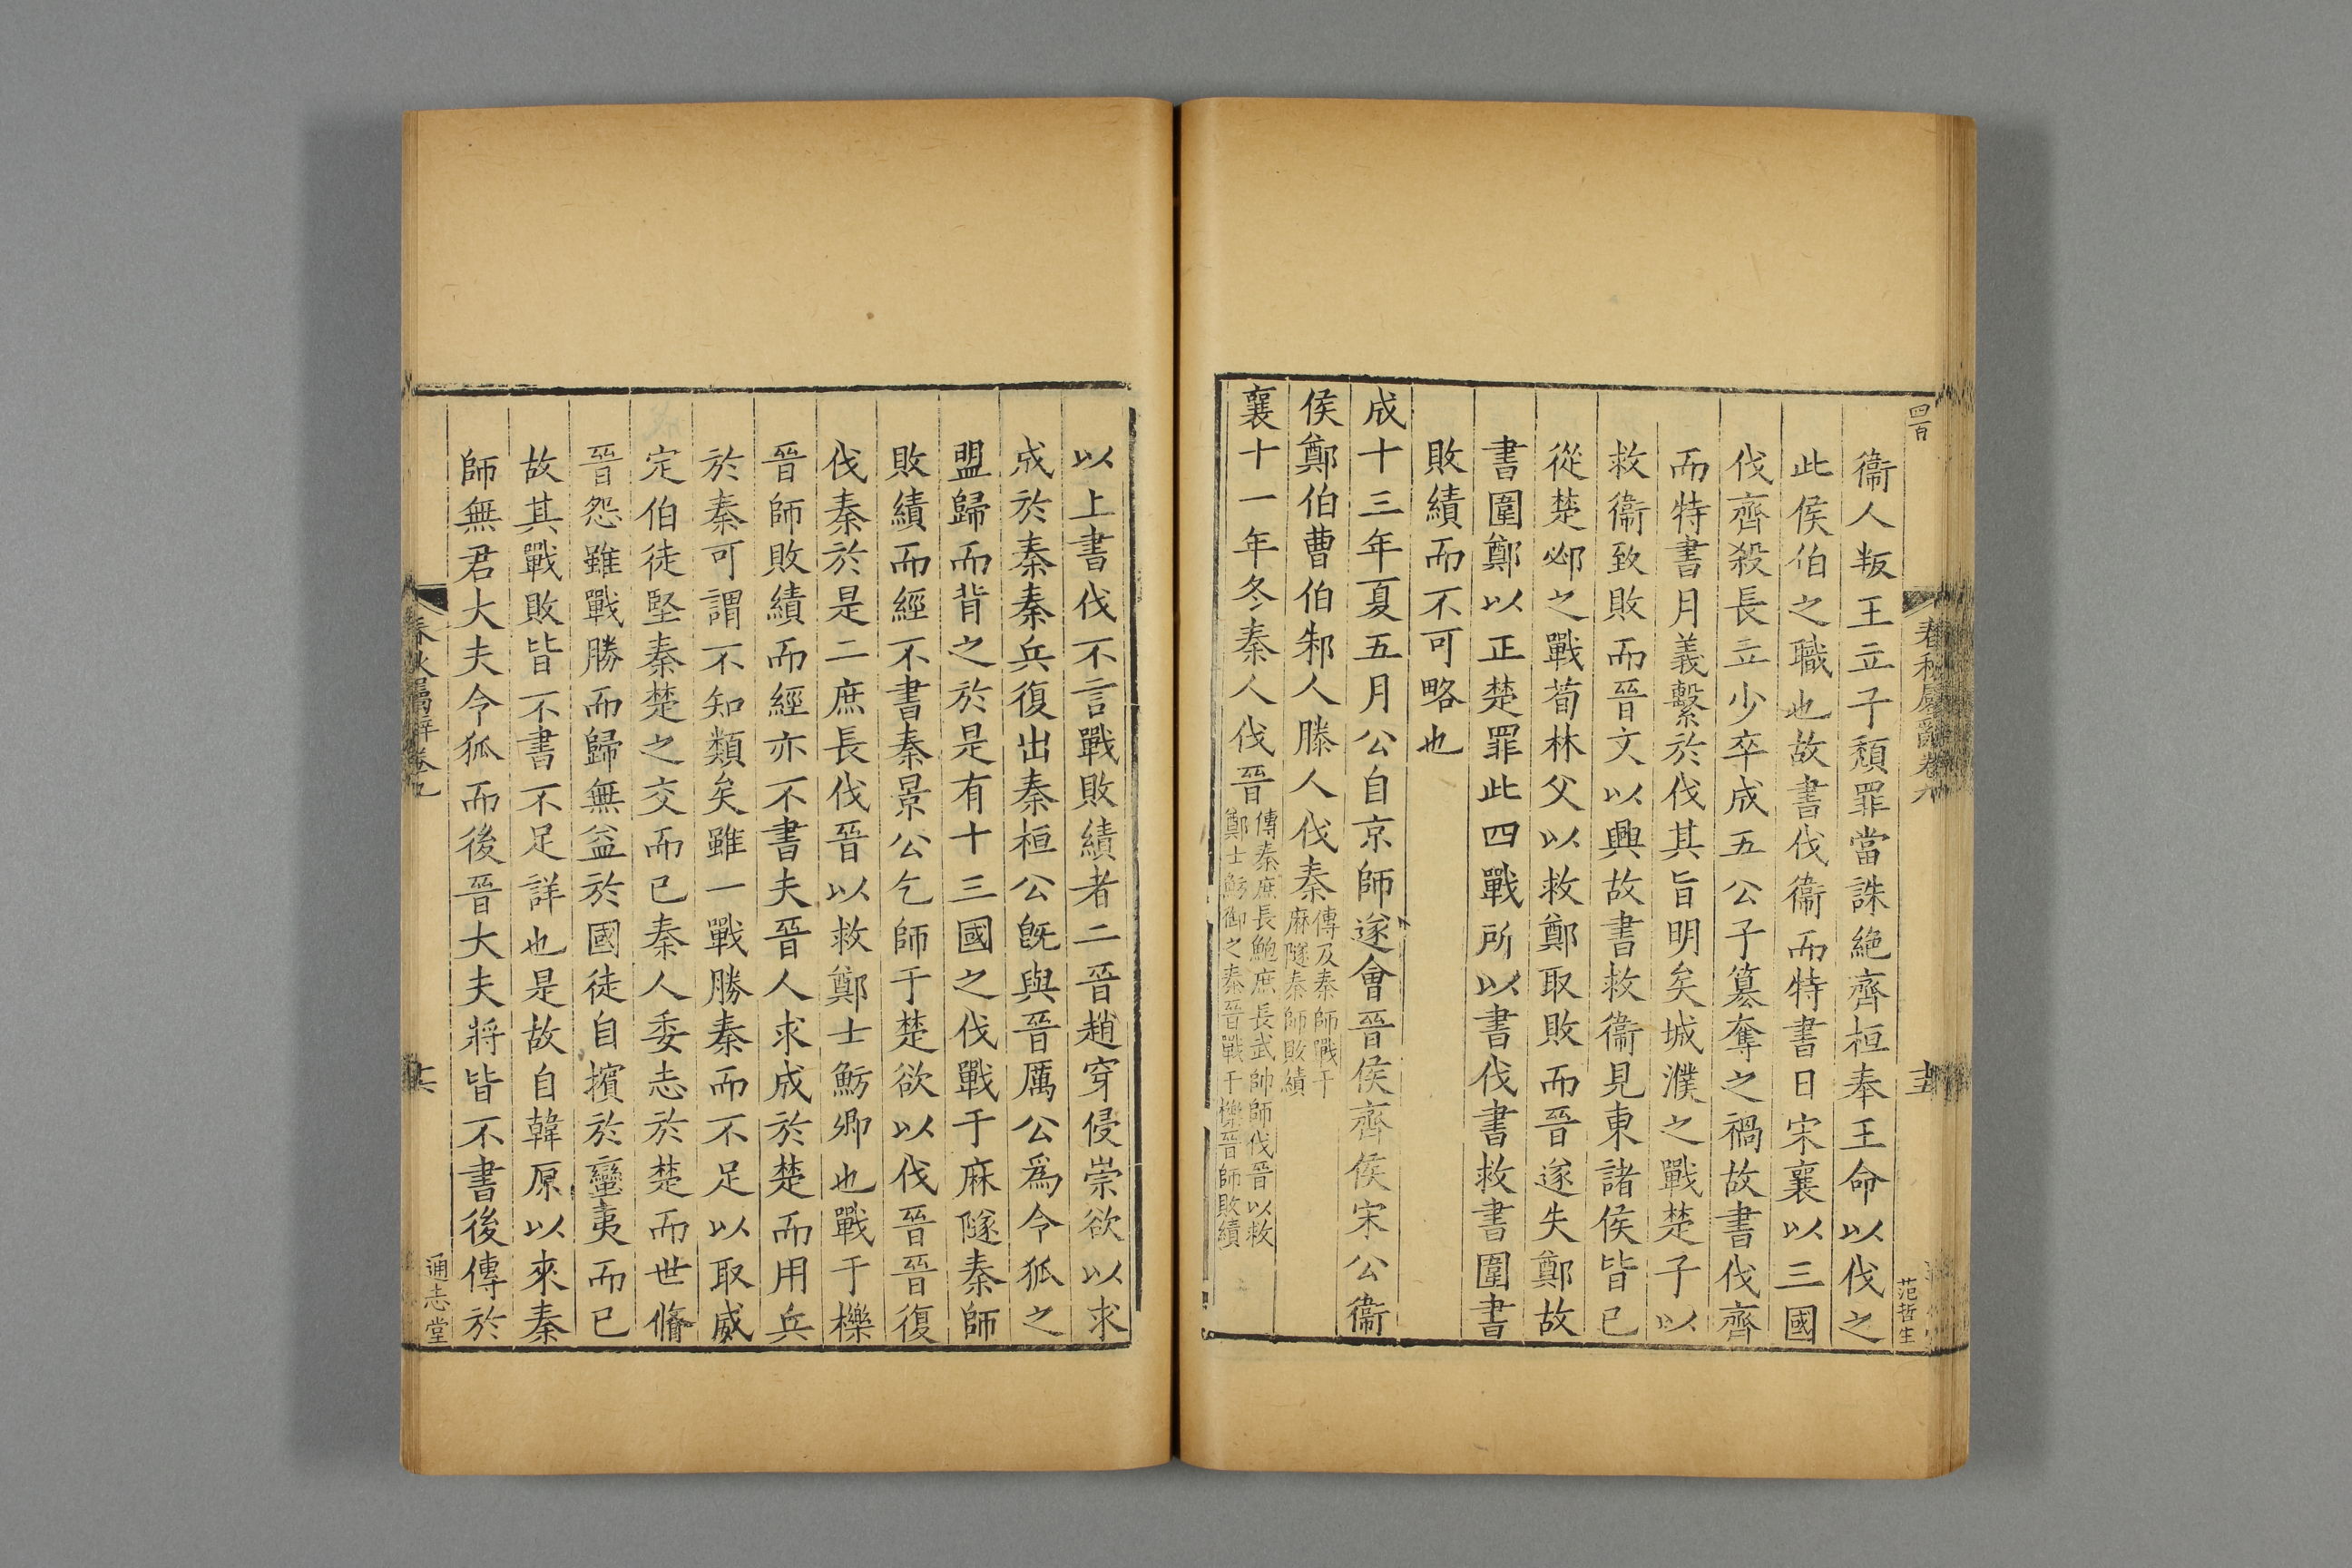 四百
春秋屬辭卷九
十五
范哲生
衞人叛王立子頽罪當誅絶齊桓奉王命以伐之
此侯伯之職也故書伐衞而特書日宋襄以三國
伐齊殺長立少卒成五公子簒奪之禍故書伐齊
而特書月義繫於伐其旨明矣城濮之戰楚子以
救衞致敗而晉文以興故書救衞見東諸侯皆已
從楚邲之戰荀林父以救鄭取敗而晉遂失鄭故
書圍鄭以正楚罪此四戰所以書伐書救書圍書
敗績而不可略也
成十三年夏五月公自京師遂會晉侯齊侯宋公衞
侯鄭伯曹伯邾人滕人伐秦傳及秦師戰于
麻隧秦師敗績
襄十一年冬秦人伐晉傳秦庶長鮑庶長武帥師伐晉以救
鄭士魴御之秦晉戰于櫟晉師敗績
以上書伐不言戰敗績者二晉趙穿侵崇欲以求
成於秦秦兵復出秦桓公旣與晉厲公爲令狐之
盟歸而背之於是有十三國之伐戰于麻隧秦師
敗績而經不書秦景公乞師于楚欲以伐晉晉復
伐秦於是二庶長伐晉以救鄭士魴卿也戰于櫟
晉師敗績而經亦不書夫晉人求成於楚而用兵
於秦可謂不知類矣雖一戰勝秦而不足以取威
定伯徒堅秦楚之交而已秦人委志於楚而世脩
晉怨雖戰勝而歸無益於國徒自擯於蠻夷而已
故其戰敗皆不書不足詳也是故自韓原以來秦
師無君大夫令狐而後晉大夫將皆不書後傳於
春秋屬辭卷九
十六
通志堂